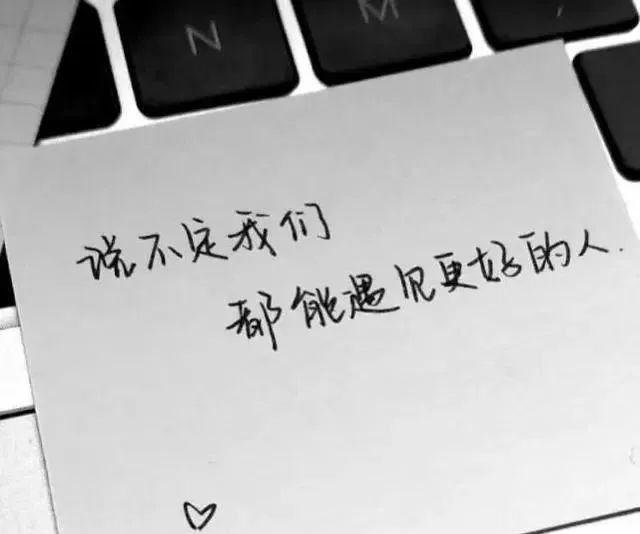 N M
说不定我们
都能遇见更好的人.